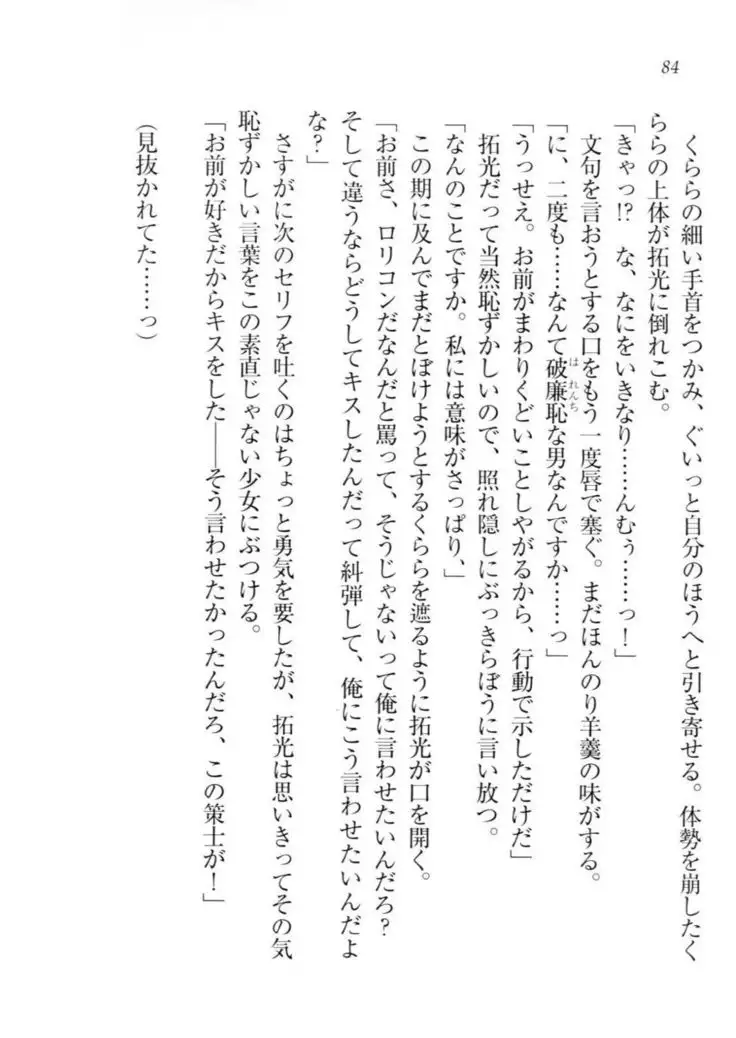 84
くららの細い手首をつかみ、ぐいっと自分のほうへと引き寄せる。体勢を崩したく
ららの上体が拓光に倒れこむ。
「きゃっ!?　な、なにをいきなり……んむぅ……っ！」
文句を言おうとする口をもう一度唇で塞ぐ。まだほんのり羊羹の味がする。
「に、二度も……なんて破廉恥な男なんですか……っ」
はれんち
「うっせえ。お前がまわりくどいことしやがるから、行動で示しただけだ」
拓光だって当然恥ずかしいので、照れ隠しにぶっきらぼうに言い放つ。
「なんのことですか。私には意味がさっぱり、」
この期に及んでまだとぼけようとするくららを遮るように拓光が口を開く。
「お前さ、ロリコンだなんだと罵って、そうじゃないって俺に言わせたいんだろ？
そして違うならどうしてキスしたんだって糾弾して、俺にこう言わせたいんだよ
な？」
さすがに次のセリフを吐くのはちょっと勇気を要したが、拓光は思いきってその気
恥ずかしい言葉をこの素直じゃない少女にぶつける。
「お前が好きだからキスをした――そう言わせたかったんだろ、この策士が！」
（見抜かれてた……っ）